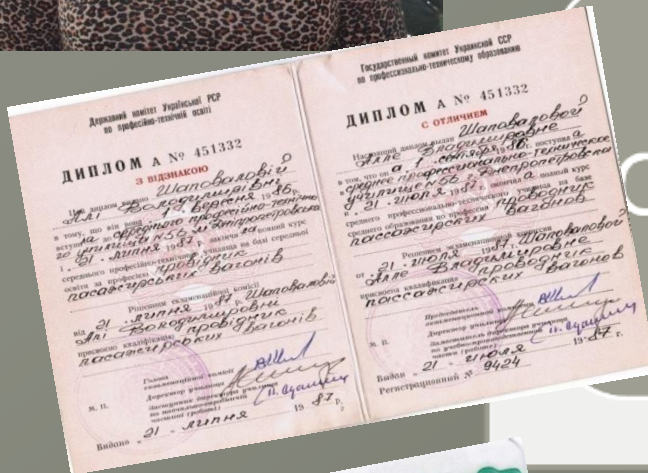 Державний комітет Української РСР
по професійно-технічній освіті
ДИПЛОМ А № 451332
З ВІДЗНАКОЮ
Цей диплом видано Шаповаловій
Аллі Володимирівні
в тому, що вона 1. вересня 1986 р.
вступила до середнього професійно-технічно-
го училища №56 м. Дніпропетровська
і 21 липня 1987 р. закінчила повний курс
середнього професійно-технічного училища на базі середньої
освіти за професією провідник
пасажирських вагонів
Рішенням екзаменаційної комісії
від 21 липня 1987 р. Шаповаловій
Аллі Володимирівні
присвоєно кваліфікацію провідник
пасажирських вагонів
Голова
екзаменаційної комісії
Директор училища
Заступник директора училища
по навчально-виробничій
частині (роботі)
М. П.
Видано „21" липня 1987 р.
Государственный комитет Украинской ССР
по профессионально-техническому образованию
ДИПЛОМ А № 451332
С ОТЛИЧИЕМ
Настоящий диплом выдан Шаповаловой
Алле Владимировне
в том, что она 1 сентября 1986 г. поступила в
среднее профессионально-техническое
училище г. Днепропетровска
и 21 июля 1987 г. окончила полный курс
среднего профессионально-технического училища на базе
среднего образования по профессии проводник
пассажирских вагонов
Решением экзаменационной комиссии
от 21 июля 1987 г. Шаповаловой
Алле Владимировне
присвоена квалификация проводник
пассажирских вагонов
Председатель
экзаменационной комиссии
Директор училища
Заместитель директора училища
по учебно-производственной
части (работе)
М. П.
Выдан „21" июля 1987 г.
Регистрационный № 9424